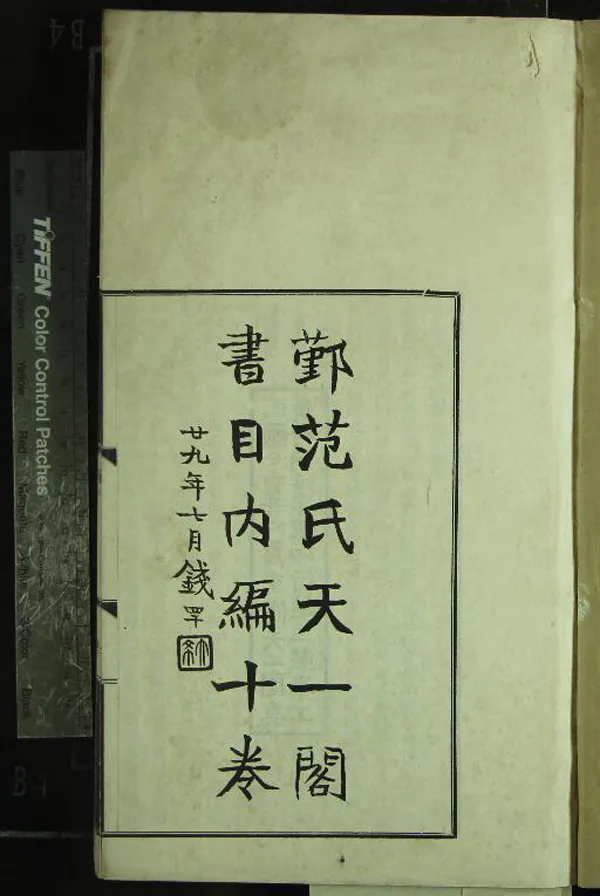 鄞范氏天一閣
書目内編十卷
廿九年七月錢罕
TIFFEN Color Control Patches
Blue
Cyan
Green
Yellow
Red
B4
B4